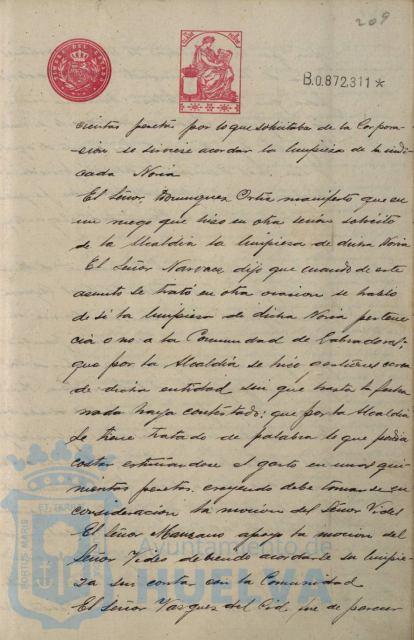 209
B.0.872,311 *
cientas pesetas por lo que solicitaba de la Corpora-
-cion se sirviese acordar la limpieza de la indi-
cada Noria
El Señor Dominguez Ortiz manifestó que en
un ruego que hizo en otra sesion solicitó
de la Alcaldia la limpieza de dicha Noria
El Señor Narvaez dijo que cuando de este
asunto se trató en otra ocasion se habló
de si la limpieza de dicha Noria pertene-
cia o no a la Comunidad de Labradores;
que por la Alcaldia se hizo gestiones cerca
de dicha entidad sin que hasta la fecha
nada haya contestado; que por la Alcaldia
se trató de palabra lo que podia
costar estimandose el gasto en unas qui-
nientas pesetas, creyendo debe tomarse en
consideracion la mocion del Señor Vides
El Señor Manzano apoya la mocion del
Señor Vides debiendo acordarse su limpie-
za sin contar con la Comunidad
El Señor Vazquez del Cid, fue de parecer
PORTUS MARIS
ET TERR
Ayuntamiento de
HUELVA